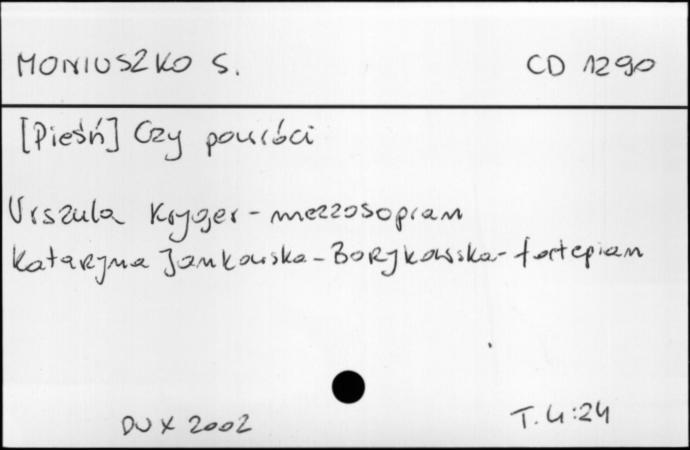 MONIUSZKO S. CD 1290
[Pieśń] Czy powróci
Urszula Kryger - mezzosopran
Katarzyna Jankowska - Borzykowska - fortepian
DUX 2002 T. 4:24